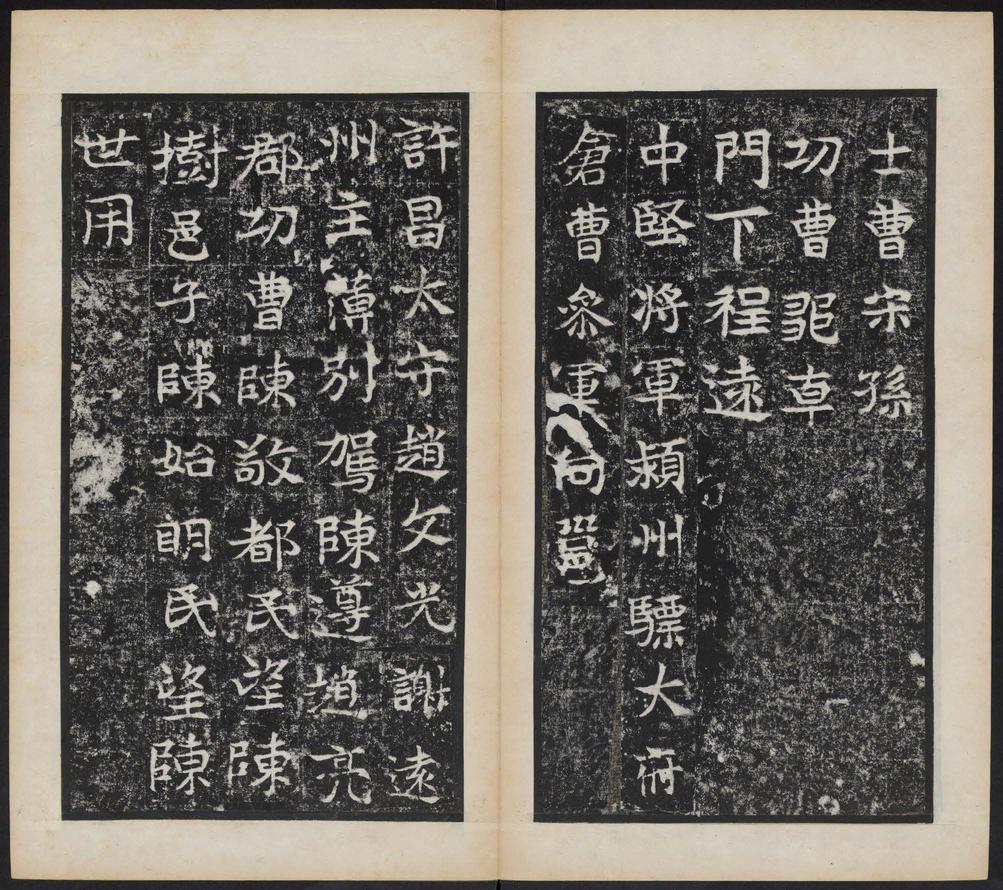 士曹宋孫
功曹鞏卓
門下程遠
中堅将軍潁州驃大府
倉曹叅軍向邕
許昌太守趙文光謝遠
州主薄別駕陳遵趙亮
郡功曹陳敬都民望陳
樹邑子陳始明民望陳
世用